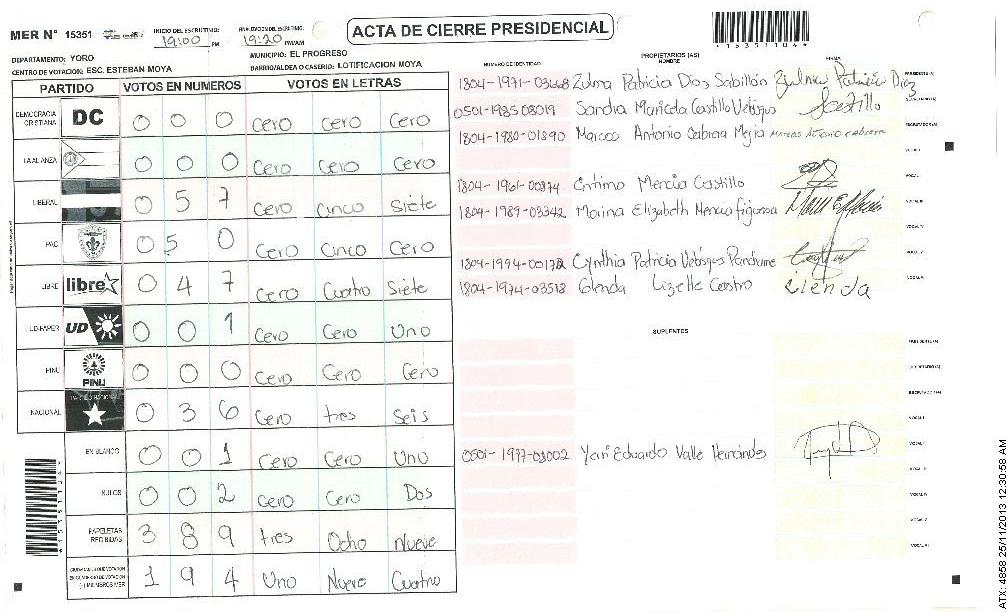 MER N° 15351
INICIO DEL ESCRUTINIO: 19:00 PM
19:20 PM/AM
ACTA DE CIERRE PRESIDENCIAL
*15351104*
DEPARTAMENTO: YORO
MUNICIPIO: EL PROGRESO
CENTRO DE VOTACION: ESC. ESTEBAN MOYA
BARRIO/ALDEA O CASERIO: LOTIFICACION MOYA
PARTIDO VOTOS EN NUMEROS VOTOS EN LETRAS
DEMOCRACIA CRISTIANA DC 0 0 0 Cero Cero Cero
LA ALIANZA 0 0 0 Cero Cero Cero
LIBERAL 0 5 7 Cero Cinco Siete
PAC 0 5 0 Cero Cinco Cero
LIBRE libre 0 4 7 Cero Cuatro Siete
UD-FAPER UD 0 0 1 Cero Cero Uno
PINU PINU 0 0 0 Cero Cero Cero
NACIONAL 0 3 6 Cero tres Seis
EN BLANCO 0 0 1 Cero Cero Uno
NULOS 0 0 2 Cero Cero Dos
PAPELETAS RECIBIDAS 3 8 9 tres Ocho Nueve
1 9 4 Uno Nueve Cuatro
NUMERO DE IDENTIDAD
PROPIETARIOS (AS)
NOMBRE
FIRMA
1804-1971-03668 Zulma Patricia Dias Sabillón Zulma Patricia Diaz
0501-1985 08019 Sandra Maricela Castillo Velasques SCastillo
1804-1980-01890 Marcos Antonio Cabrera Mejia Marcos Antonio Cabrera
1804-1961-00874 Mencia Castillo
1804-1989-03342 Marina Elizabeth Mencia figueroa
1804-1994-00172 Cynthia Patricia Velasques
1804-1974-03518 Glenda Lizette Castro Glenda
SUPLENTES
0501-1977-08002 Yari Eduardo Valle Hernandes
ATX: 4858 25/11/2013 12:30:58 AM